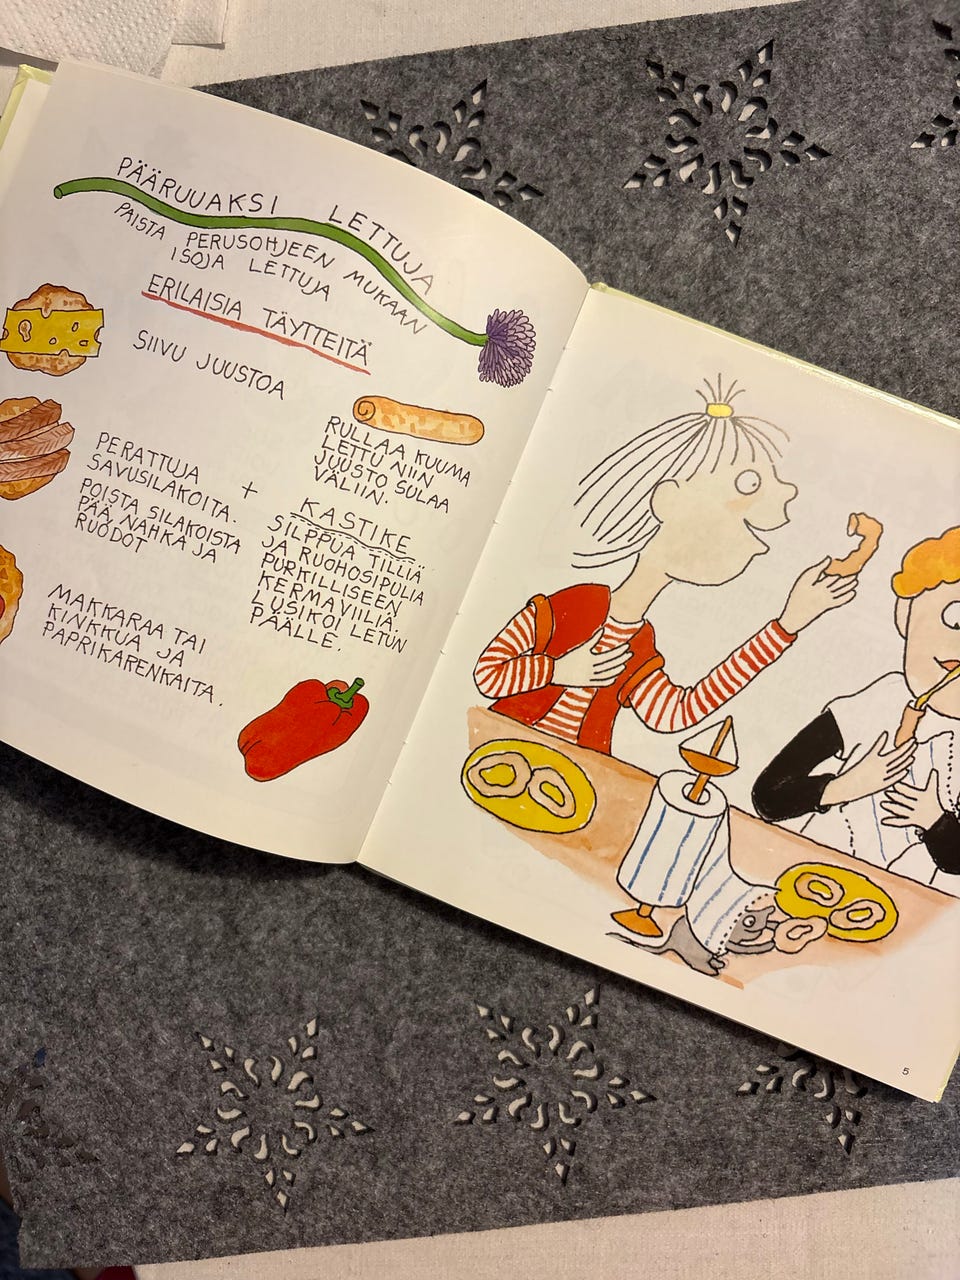 PÄÄRUUAKSI LETTUJA
PAISTA PERUSOHJEEN MUKAAN
ISOJA LETTUJA
ERILAISIA TÄYTTEITÄ
SIIVU JUUSTOA
RULLAA KUUMA
LETTU NIIN
JUUSTO SULAA
VÄLIIN.
PERATTUJA
SAVUSILAKOITA.
POISTA SILAKOISTA
PÄÄ, NAHKA JA
RUODOT
+
KASTIKE
SILPPUA TILLIÄ
JA RUOHOSIPULIA
PURKILLISEEN
KERMAVIILIÄ.
LUSIKOI LETUN
PÄÄLLE.
MAKKARAA TAI
KINKKUA JA
PAPRIKARENKAITA.
5